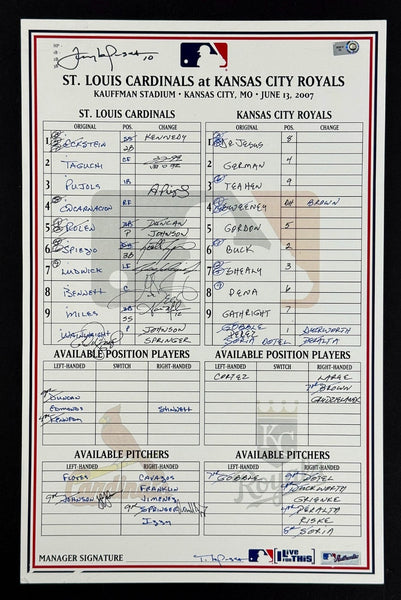 HP -
1B -
2B -
3B -
10
ST. LOUIS CARDINALS at KANSAS CITY ROYALS
KAUFFMAN STADIUM • KANSAS CITY, MO • JUNE 13, 2007
ST. LOUIS CARDINALS
KANSAS CITY ROYALS
ORIGINAL POS. CHANGE
ORIGINAL POS. CHANGE
1 ECKSTEIN KENNEDY
2B
1 DeJESUS 8
2 TAGUCHI CF
2 GERMAN 4
3 PUJOLS 1B
3 TEAHEN 9
4 ENCARNACION RF
4 SWEENEY DH BROWN
5 ROLEN DUNCAN
P JOHNSON
5 GORDON 5
6 SPIEZIO
3B
6 BUCK 2
7 LUDWICK
7 SHEALY 3
8 BENNETT C
8 PENA 6
9 MILES
SS
9 GATHRIGHT 7
WAINWRIGHT P JOHNSON
SPRINGER
GOBBLE
PEREZ 1 DUCKWORTH
SORIA DOTEL PERALTA
AVAILABLE POSITION PLAYERS
AVAILABLE POSITION PLAYERS
LEFT-HANDED SWITCH RIGHT-HANDED
LEFT-HANDED SWITCH RIGHT-HANDED
CORTEZ LARUE
BROWN
GRUDZIELANEK
DUNCAN
EDMONDS STINNETT
KENNEDY
AVAILABLE PITCHERS
AVAILABLE PITCHERS
LEFT-HANDED RIGHT-HANDED
LEFT-HANDED RIGHT-HANDED
FLORES CAVAZOS
FRANKLIN
JOHNSON JIMENEZ
SPRINGER
IZZY
GOBBLE DOTEL
DUCKWORTH
GREINKE
PERALTA
RISKE
SORIA
Cardinals
KC
Royals
MANAGER SIGNATURE
I Live for THIS
Authentic